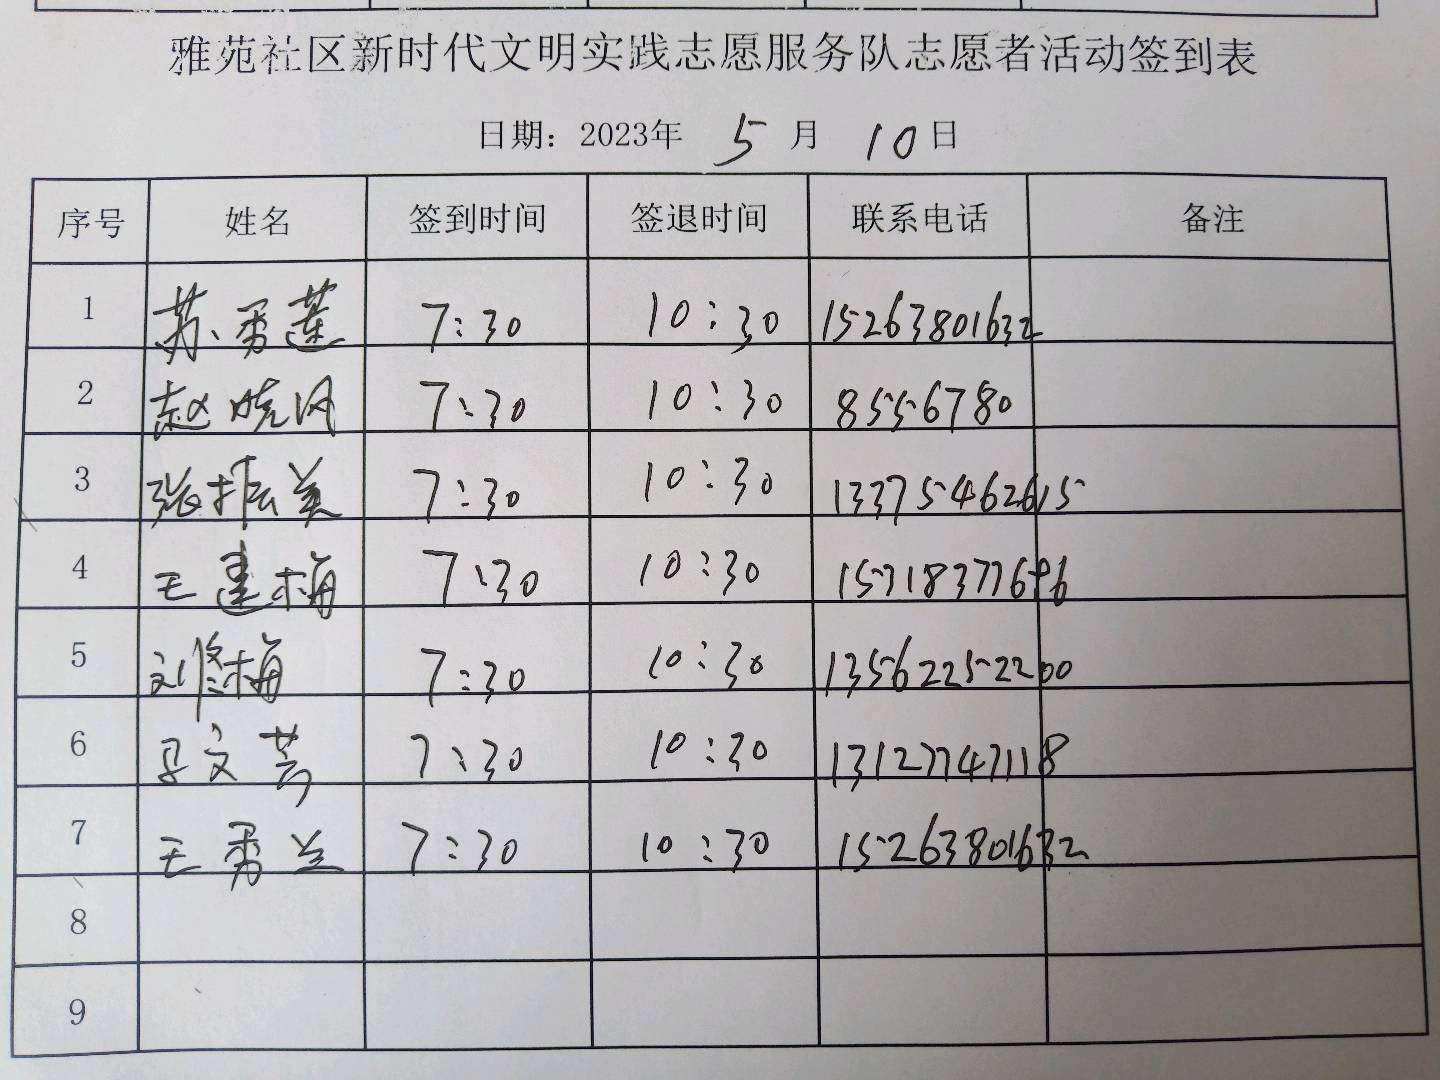 雅苑社区新时代文明实践志愿服务队志愿者活动签到表
日期：2023年 5 月 10 日
序号 姓名 签到时间 签退时间 联系电话 备注
1 苏秀莲 7:30 10:30 15263801632
2 赵晓风 7:30 10:30 8556780
3 张振美 7:30 10:30 13375462615
4 王建梅 7:30 10:30
5 刘修梅 7:30 10:30 13562252200
6 马文芳 7:30 10:30 13127747118
7 王秀兰 7:30 10:30 15263801632
8
9